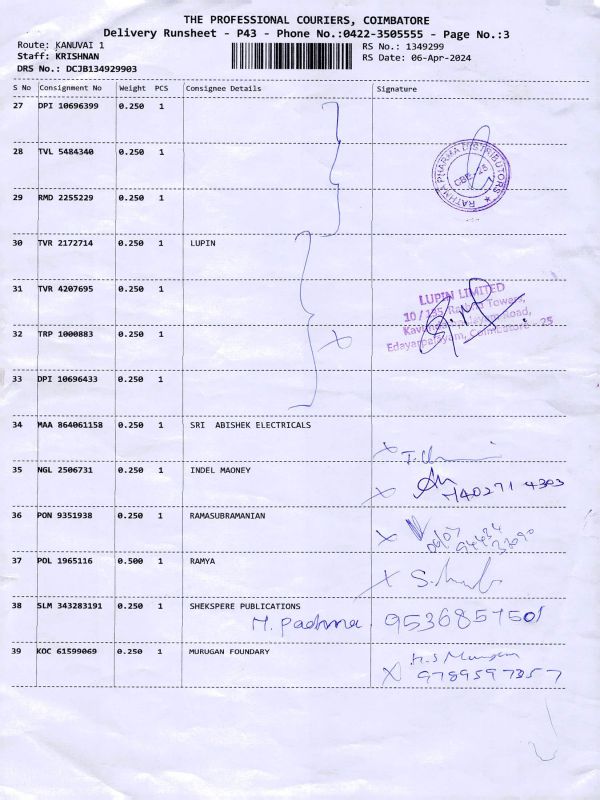 THE PROFESSIONAL COURIERS, COIMBATORE
Delivery Runsheet - P43 - Phone No.:0422-3505555 - Page No.:3
Route: KANUVAI 1
RS No.: 1349299
Staff: KRISHNAN
RS Date: 06-Apr-2024
DRS No.: DCJB134929903
S No Consignment No Weight PCS Consignee Details Signature
27 DPI 10696399 0.250 1
28 TVL 5484340 0.250 1
RATHNA PHARMA DISTRIBUTORS
CBE - 25
29 RMD 2255229 0.250 1
30 TVR 2172714 0.250 1 LUPIN
31 TVR 4207695 0.250 1
LUPIN LIMITED
Towers,
Road,
32 TRP 1000883 0.250 1
Edayarpalayam, Coimbatore - 25
33 DPI 10696433 0.250 1
34 MAA 864061158 0.250 1 SRI ABISHEK ELECTRICALS
35 NGL 2506731 0.250 1 INDEL MAONEY
36 PON 9351938 0.250 1 RAMASUBRAMANIAN
37 POL 1965116 0.500 1 RAMYA
38 SLM 343283191 0.250 1 SHEKSPERE PUBLICATIONS
M. Padma 9536857501
39 KOC 61599069 0.250 1 MURUGAN FOUNDARY
9789597357